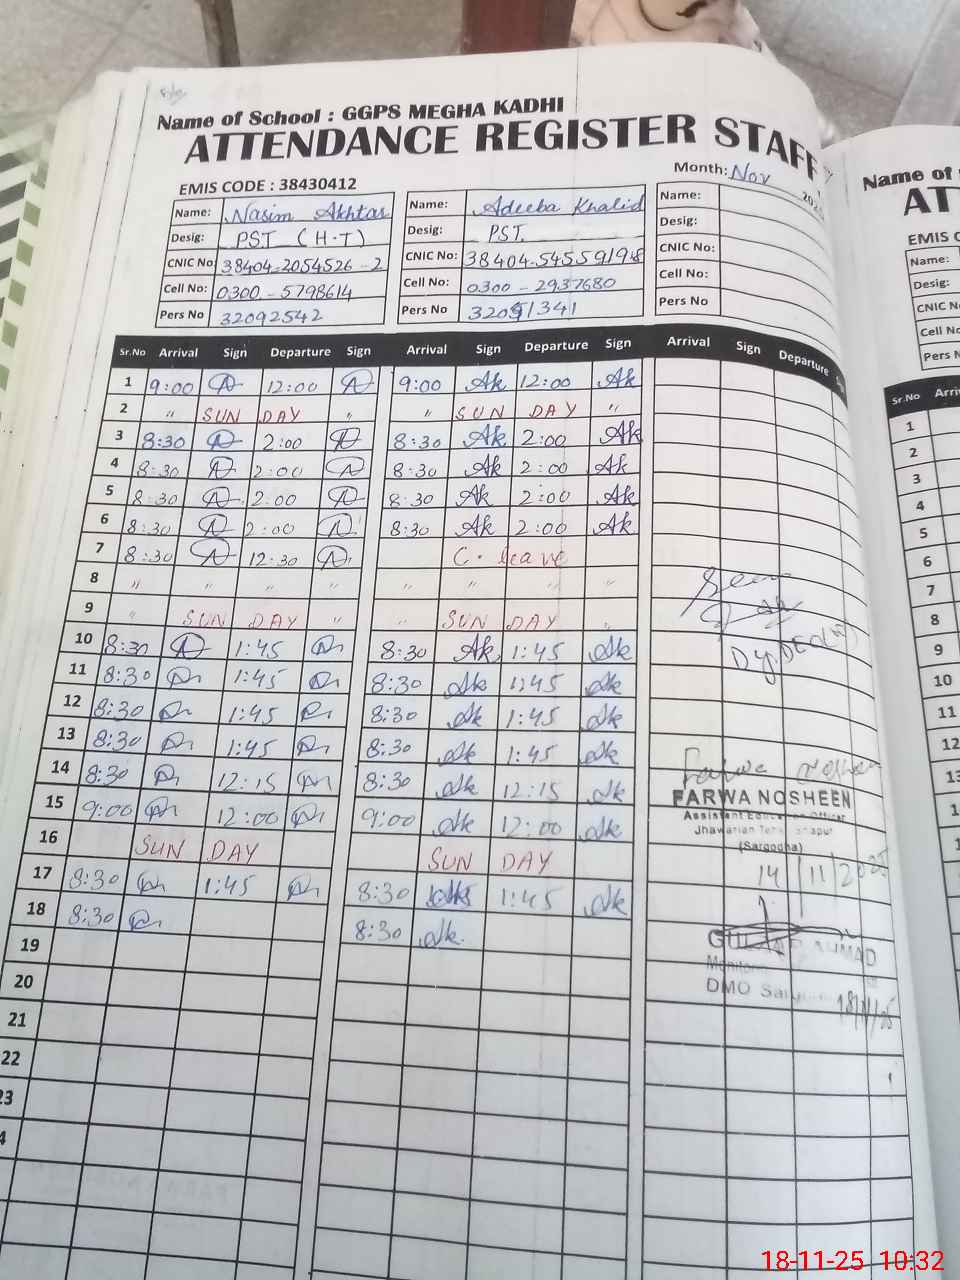 Name of School : GGPS MEGHA KADHI
ATTENDANCE REGISTER STAFF
EMIS CODE : 38430412
Month: Nov
Name: Nasim Akhtar
Desig: PST (H.T)
CNIC No: 38404-2054526-2
Cell No: 0300-5798614
Pers No 32092542
Name: Adeeba Khalid
Desig: PST
CNIC No: 38404-5455919-8
Cell No: 0300-2937680
Pers No
Name:
Desig:
CNIC No:
Cell No:
Pers No
Sr.No Arrival Sign Departure Sign Arrival Sign Departure Sign Arrival Sign Departure
1 9:00 12:00 9:00 Ak 12:00 Ak
2 " SUN DAY " " SUN DAY "
3 8:30 2:00 8:30 Ak 2:00 Ak
4 8:30 2:00 8:30 Ak 2:00 Ak
5 8:30 2:00 8:30 Ak 2:00 Ak
6 8:30 2:00 8:30 Ak 2:00 Ak
7 8:30 12:30 C. leave
8 " " " " " " " "
9 " SUN DAY " " SUN DAY "
10 8:30 1:45 8:30 Ak 1:45 Ak
11 8:30 1:45 8:30 Ak 1:45 Ak
12 8:30 1:45 8:30 Ak 1:45 Ak
13 8:30 1:45 8:30 Ak 1:45 Ak
14 8:30 12:15 8:30 Ak 12:15 Ak
15 9:00 12:00 9:00 Ak 12:00 Ak
16 SUN DAY SUN DAY
17 8:30 1:45 8:30 1:45 Ak
18 8:30 8:30 Ak
19
20
21
22
23
Seen
Farwa Nosheen
FARWA NOSHEEN
Assistant Education Officer
(Sargodha)
14/11/2025
AHMAD
DMO
18/11/25
Name of
AT
EMIS C
Name:
Desig:
CNIC No
Cell No
Pers N
Sr.No Arri
1
2
3
4
5
6
7
8
9
10
11
12
13
14
18-11-25 10:32